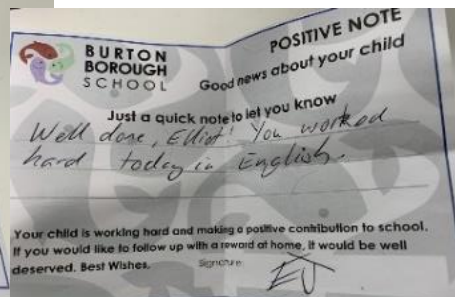 BURTON
BOROUGH
SCHOOL
POSITIVE NOTE
Good news about your child
Just a quick note to let you know
Well done, Elliot! You worked
hard today in English.
Your child is working hard and making a positive contribution to school.
If you would like to follow up with a reward at home, it would be well
deserved. Best Wishes.
Signature
EJ